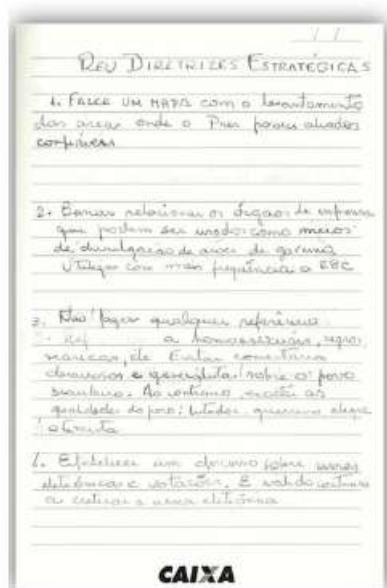 REU DIRETRIZES ESTRATÉGICAS
1. FAZER UM MAPA com o levantamento
das áreas onde o Pres possui aliados
confiáveis
2. Bancas relacionar os órgãos de imprensa
que podem ser usados como meios
de divulgação de ações de governo
Utilizar com mais frequência a EBC
3. Não fazer qualquer referência
a homossexuais, negros
maricas, etc Evitar comentários
sobre o povo
brasileiro. Ao contrário, exaltar as
qualidades do povo: lutador, guerreiro alegre
otimista
Estabelecer um discurso sobre urnas
eletrônicas e votações. É válido continuar
a criticar a urna eletrônica
CAIXA